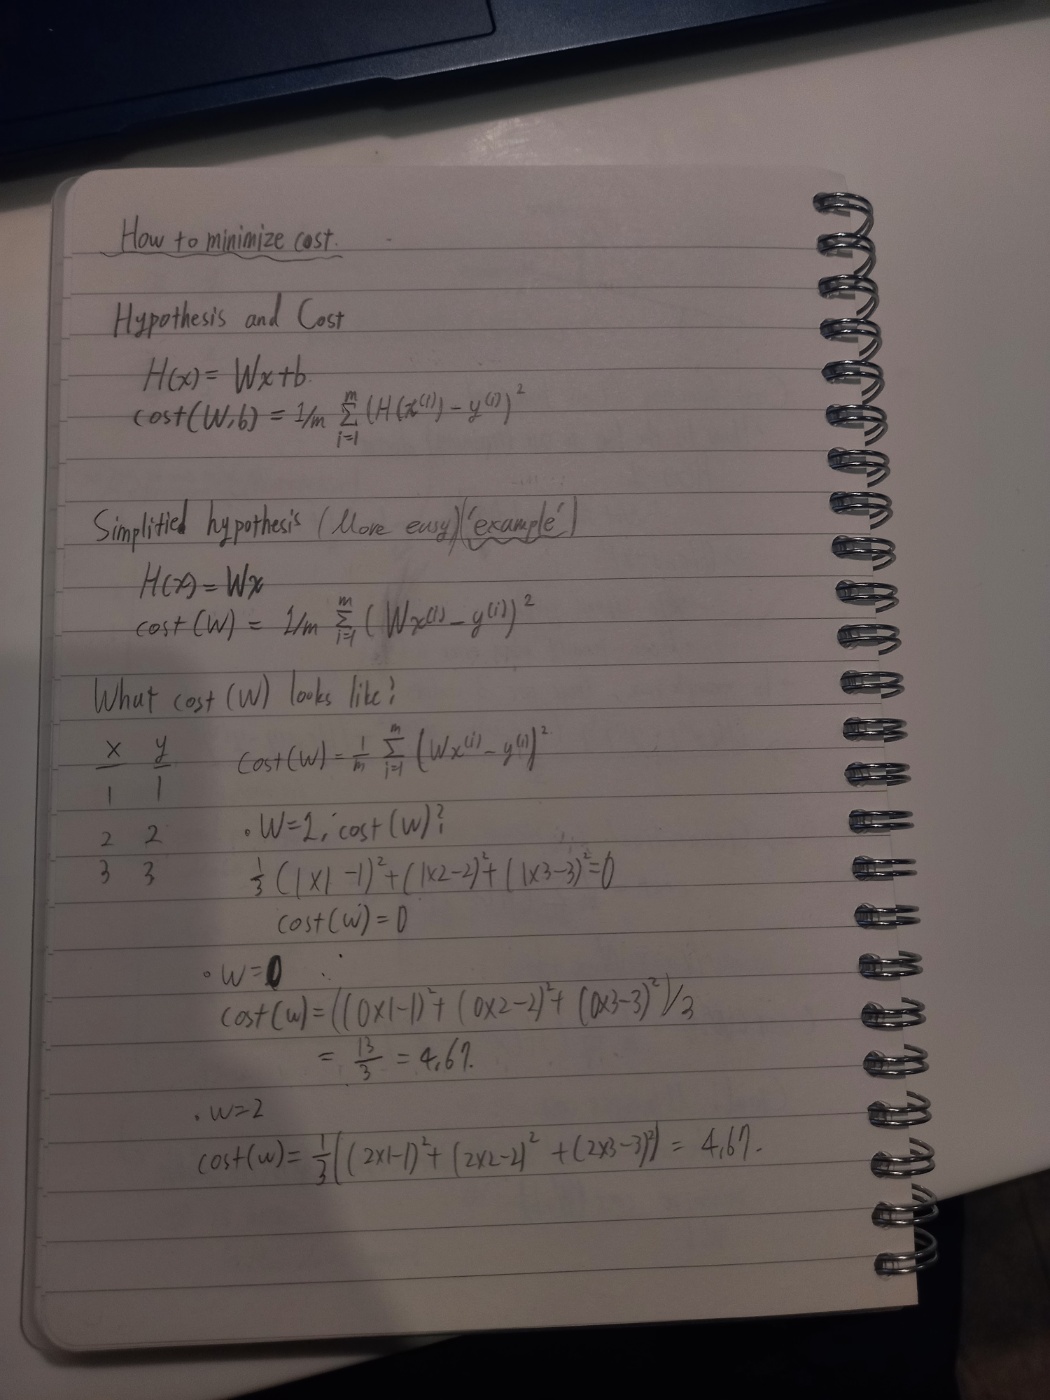 How to minimize cost.
Hypothesis and Cost
H(x) = Wx+b.
cost(W,b) = 1/m m∑i=1 (H(x^(i)) - y^(i))^2
Simplified hypothesis (More easy)('example')
H(x) = Wx
cost(W) = 1/m m∑i=1 (Wx^(i) - y^(i))^2
What cost(W) looks like?
x y cost(W) = 1/m m∑i=1 (Wx^(i) - y^(i))^2
1 1
2 2 · W=1, cost(W)?
3 3 1/3 (1x1-1)^2+(1x2-2)^2+(1x3-3)^2=0
cost(W)=0
· W=0
cost(W)=((0x1-1)^2+(0x2-2)^2+(0x3-3)^2)/3
= 13/3 = 4,67.
· W=2
cost(W)=1/3((2x1-1)^2+(2x2-2)^2+(2x3-3)^2) = 4,67.